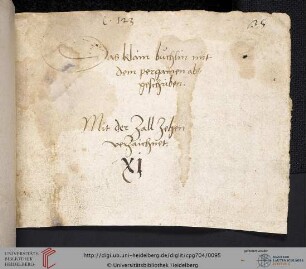 C. 123
Das klain buchlin mit
dem pergamen alt
geschriben.
Mit der Zall Zehen
verzaichnet
XI
UNIVERSITÄTS-
BIBLIOTHEK
HEIDELBERG
http://digi.ub.uni-heidelberg.de/diglit/cpg704/0095
© Universitätsbibliothek Heidelberg